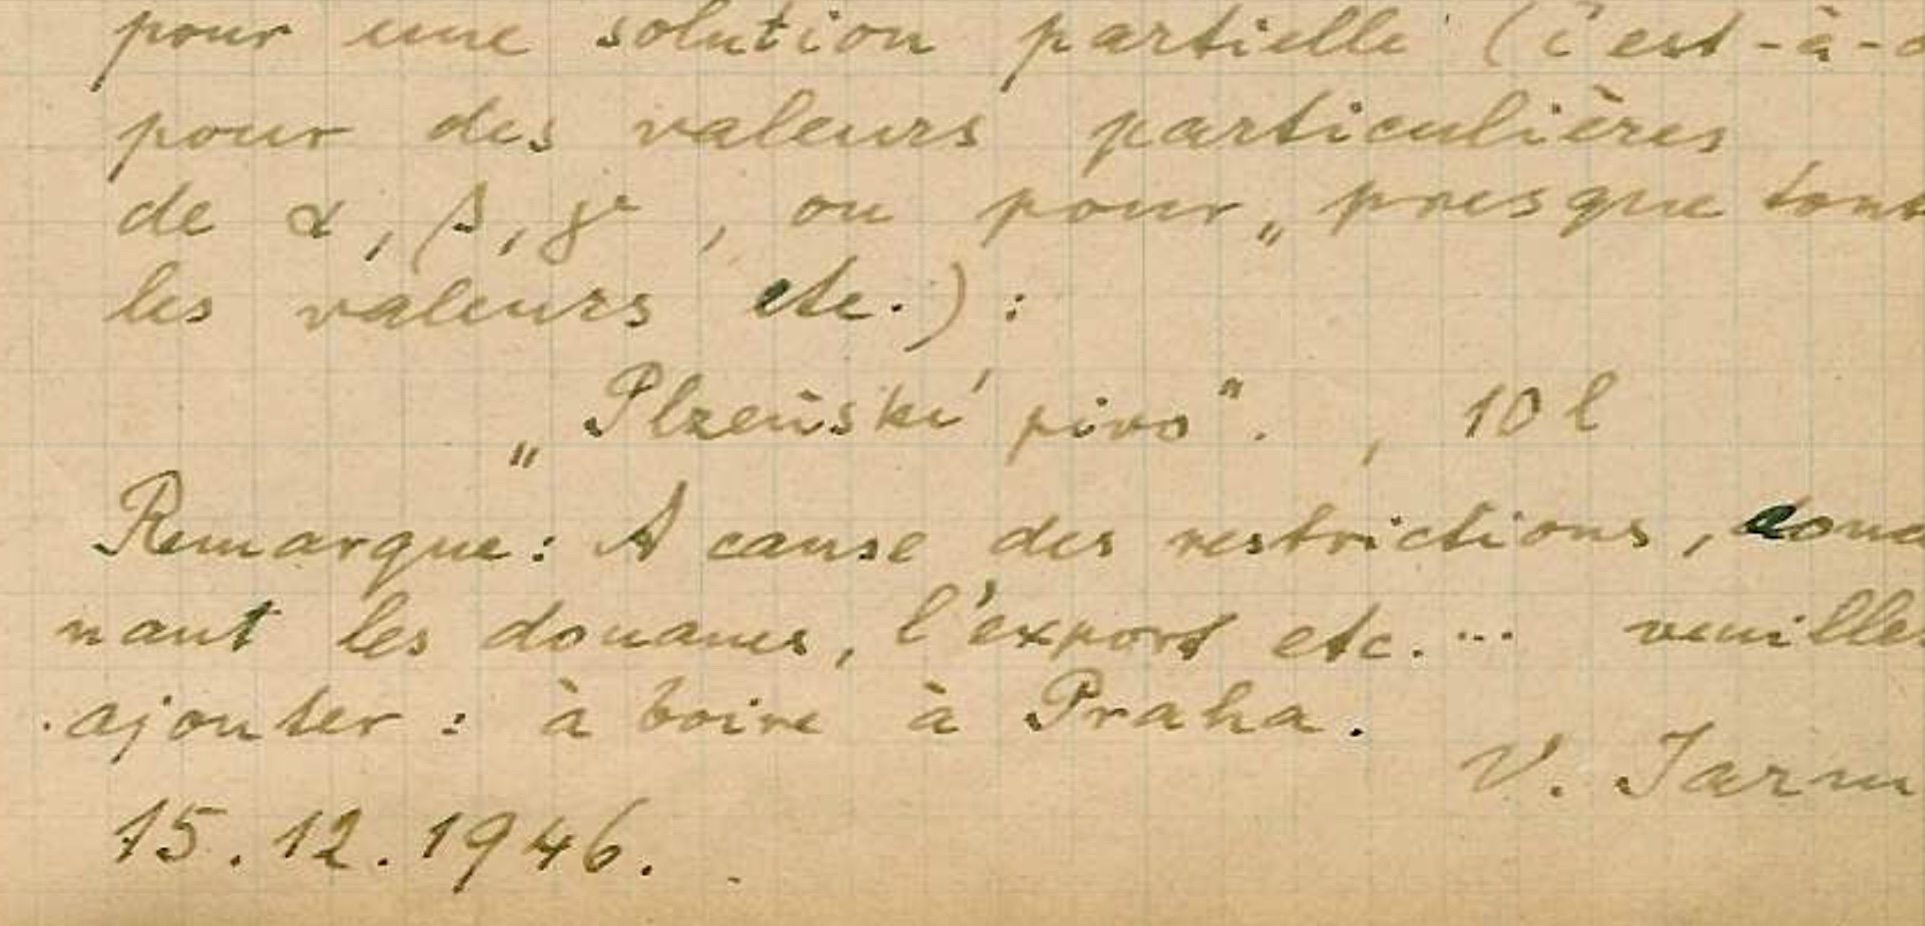 pour une solution partielle (c'est-à-d
pour des valeurs particulières
de α, β, γ, ou pour „presque tout
les valeurs etc.):
„Plzeňské pivo". , 10 l
Remarque: A cause des restrictions, conc
nant les douanes, l'export etc. ... veuille
ajouter: à boire à Praha.
V. Jarn
15.12.1946.